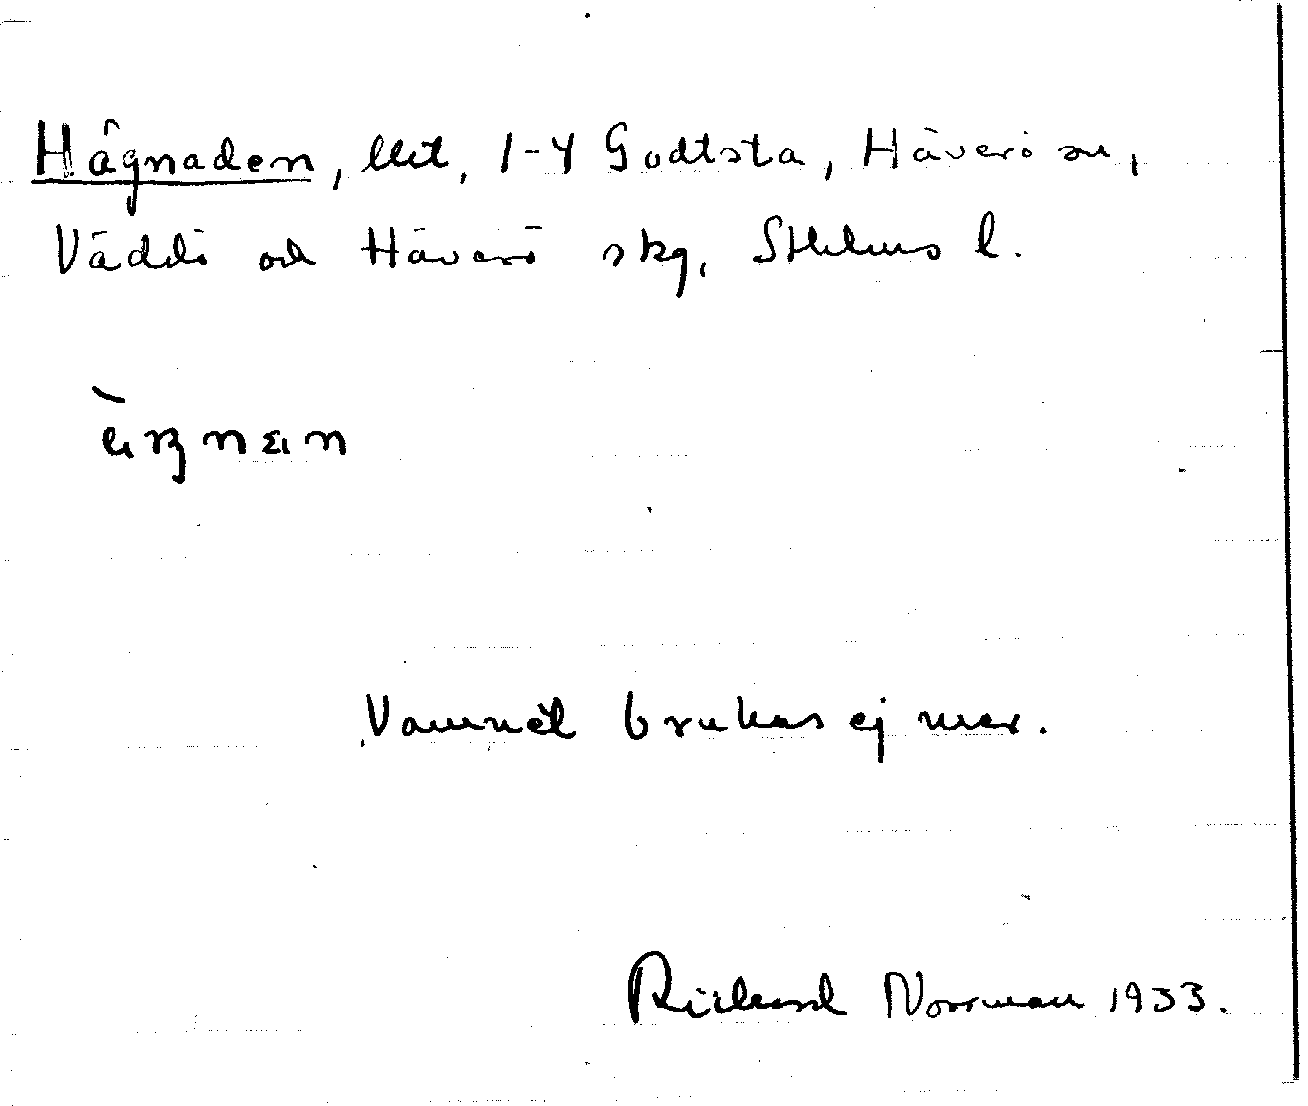 Hägnaden, litt, 1-4 Godtsta, Häverö sn,
Väddö och Häverö skg, Sthlms l.
Namnet brukas ej mer.
Richard Norrman 1933.